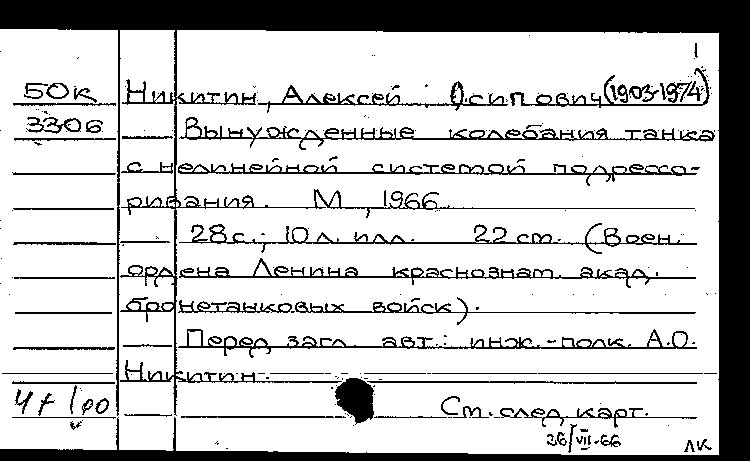 1
50к Никитин, Алексей Осипович (1903-1974)
3306 Вынужденные колебания танка
с нелинейной системой подрессо-
ривания. М., 1966
28 с.; 10 л. илл. 22 см. (Воен.
ордена Ленина краснознам. акад.
бронетанковых войск).
Перед загл. авт.: инж.-полк. А.О.
Никитин.
См. след. карт.
26/VII-66 ЛК